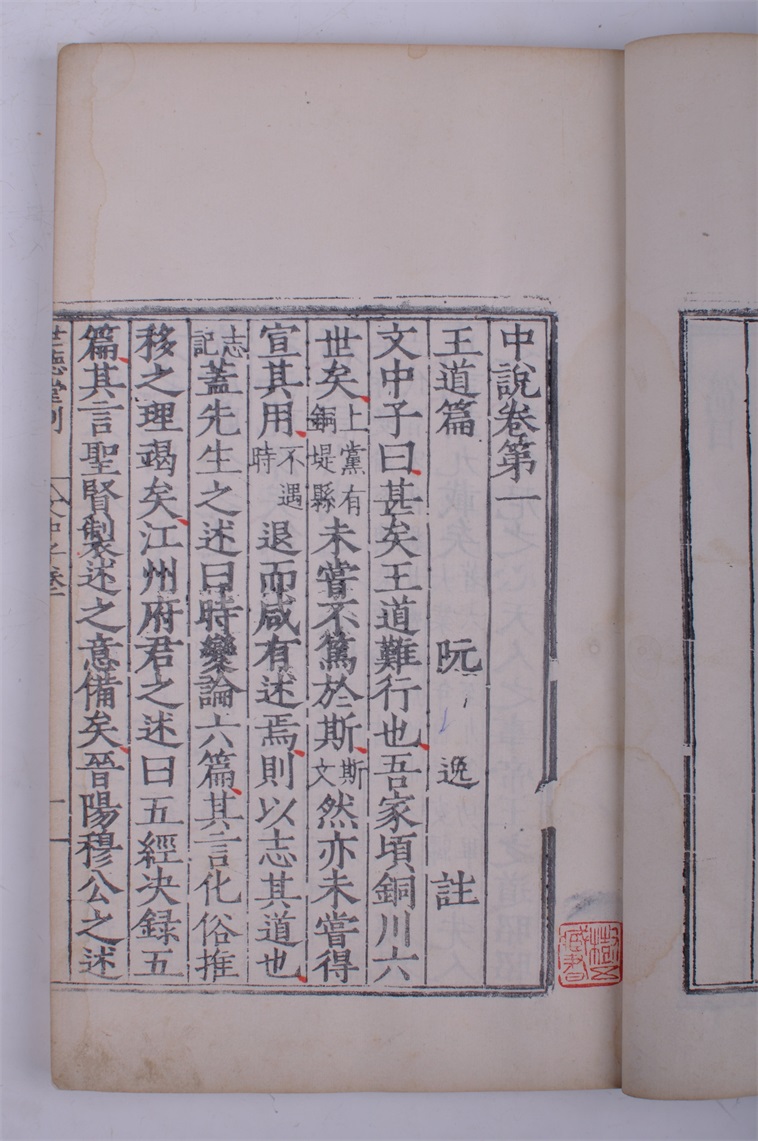 中說卷第一
王道篇 阮逸註
文中子曰甚矣王道難行也吾家頃銅川六
世矣上黨有銅堤縣未嘗不篤於斯斯文然亦未嘗得
宣其用不遇時退而咸有述焉則以志其道也
志記蓋先生之述曰時變論六篇其言化俗推
移之理竭矣江州府君之述曰五經决録五
篇其言聖賢製述之意備矣晉陽穆公之述
世德堂刊 文中子卷一 一